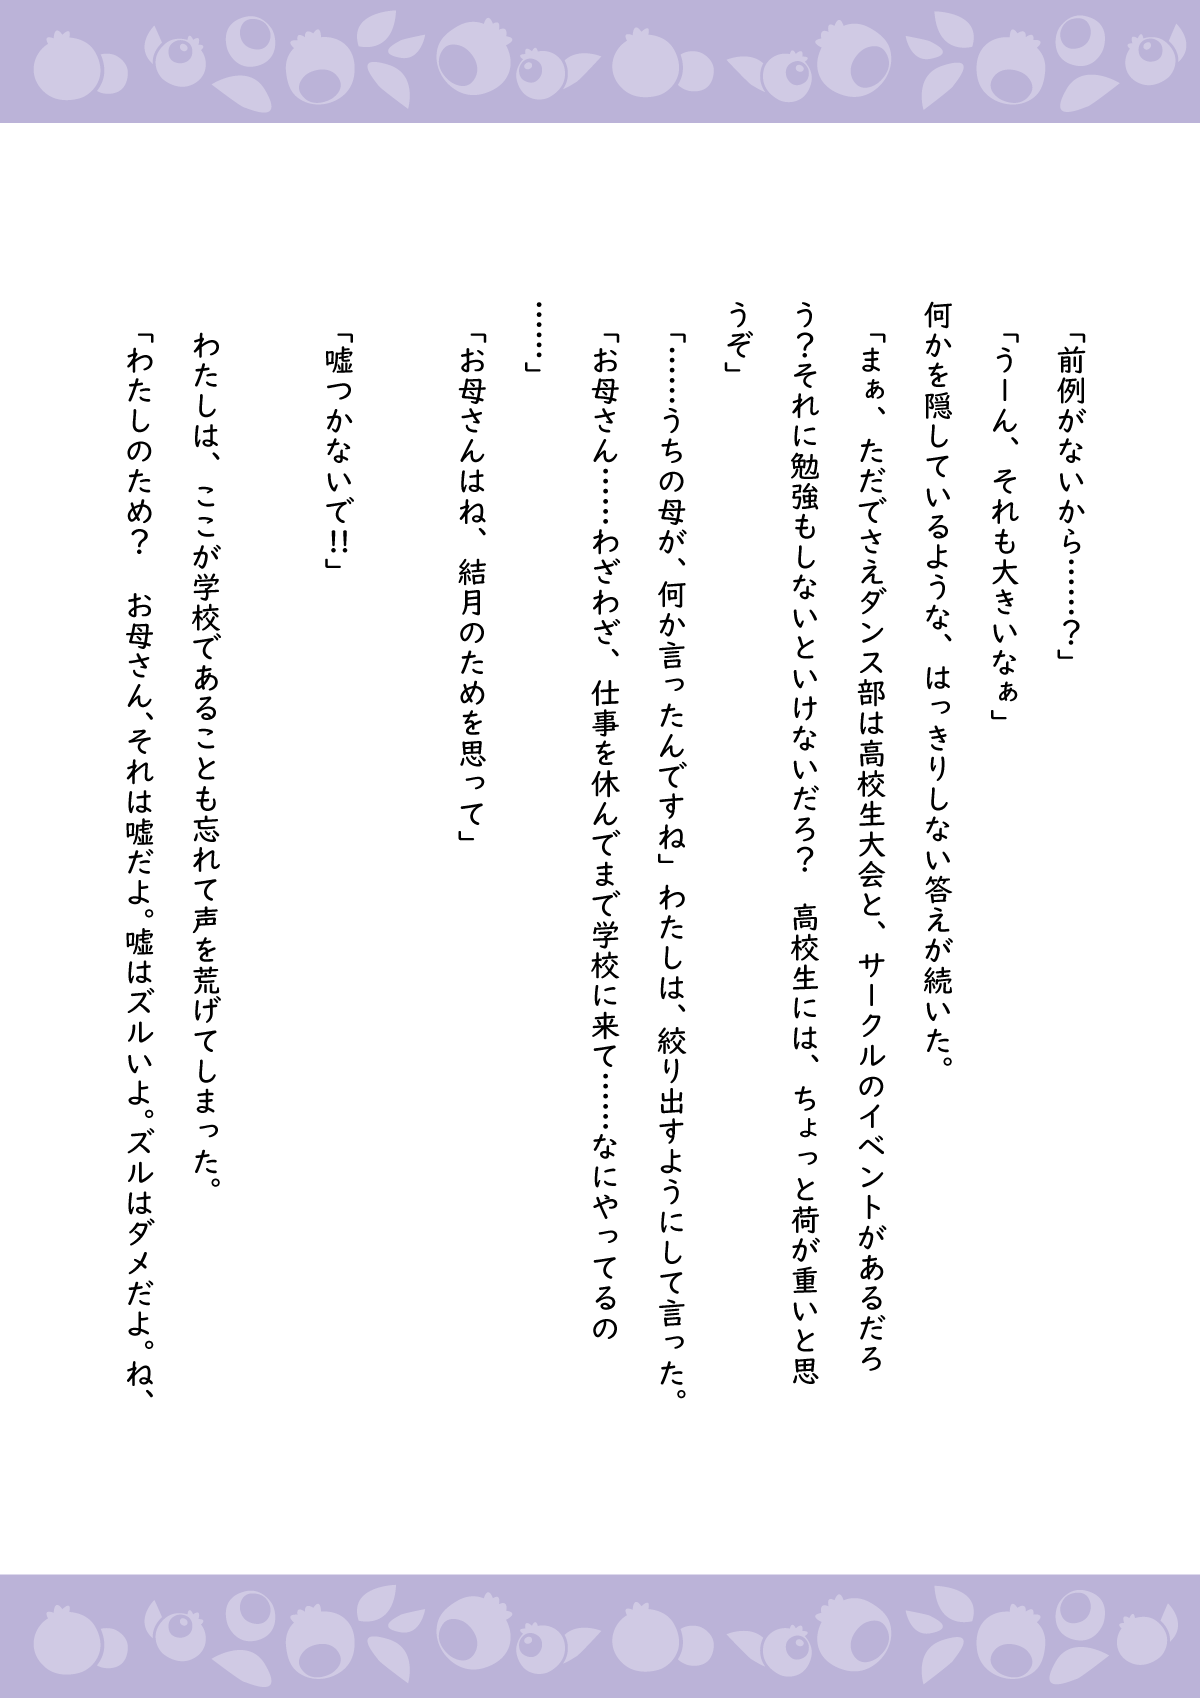 「前例がないから……？」
「うーん、それも大きいなぁ」
何かを隠しているような、はっきりしない答えが続いた。
「まぁ、ただでさえダンス部は高校生大会と、サークルのイベントがあるだろ
う？それに勉強もしないといけないだろ？　高校生には、ちょっと荷が重いと思
うぞ」
「……うちの母が、何か言ったんですね」わたしは、絞り出すようにして言った。
「お母さん……わざわざ、仕事を休んでまで学校に来て……なにやってるの
……」
「お母さんはね、結月のためを思って」
「嘘つかないで!!」
わたしは、ここが学校であることも忘れて声を荒げてしまった。
「わたしのため？　お母さん、それは嘘だよ。嘘はズルいよ。ズルはダメだよ。ね、